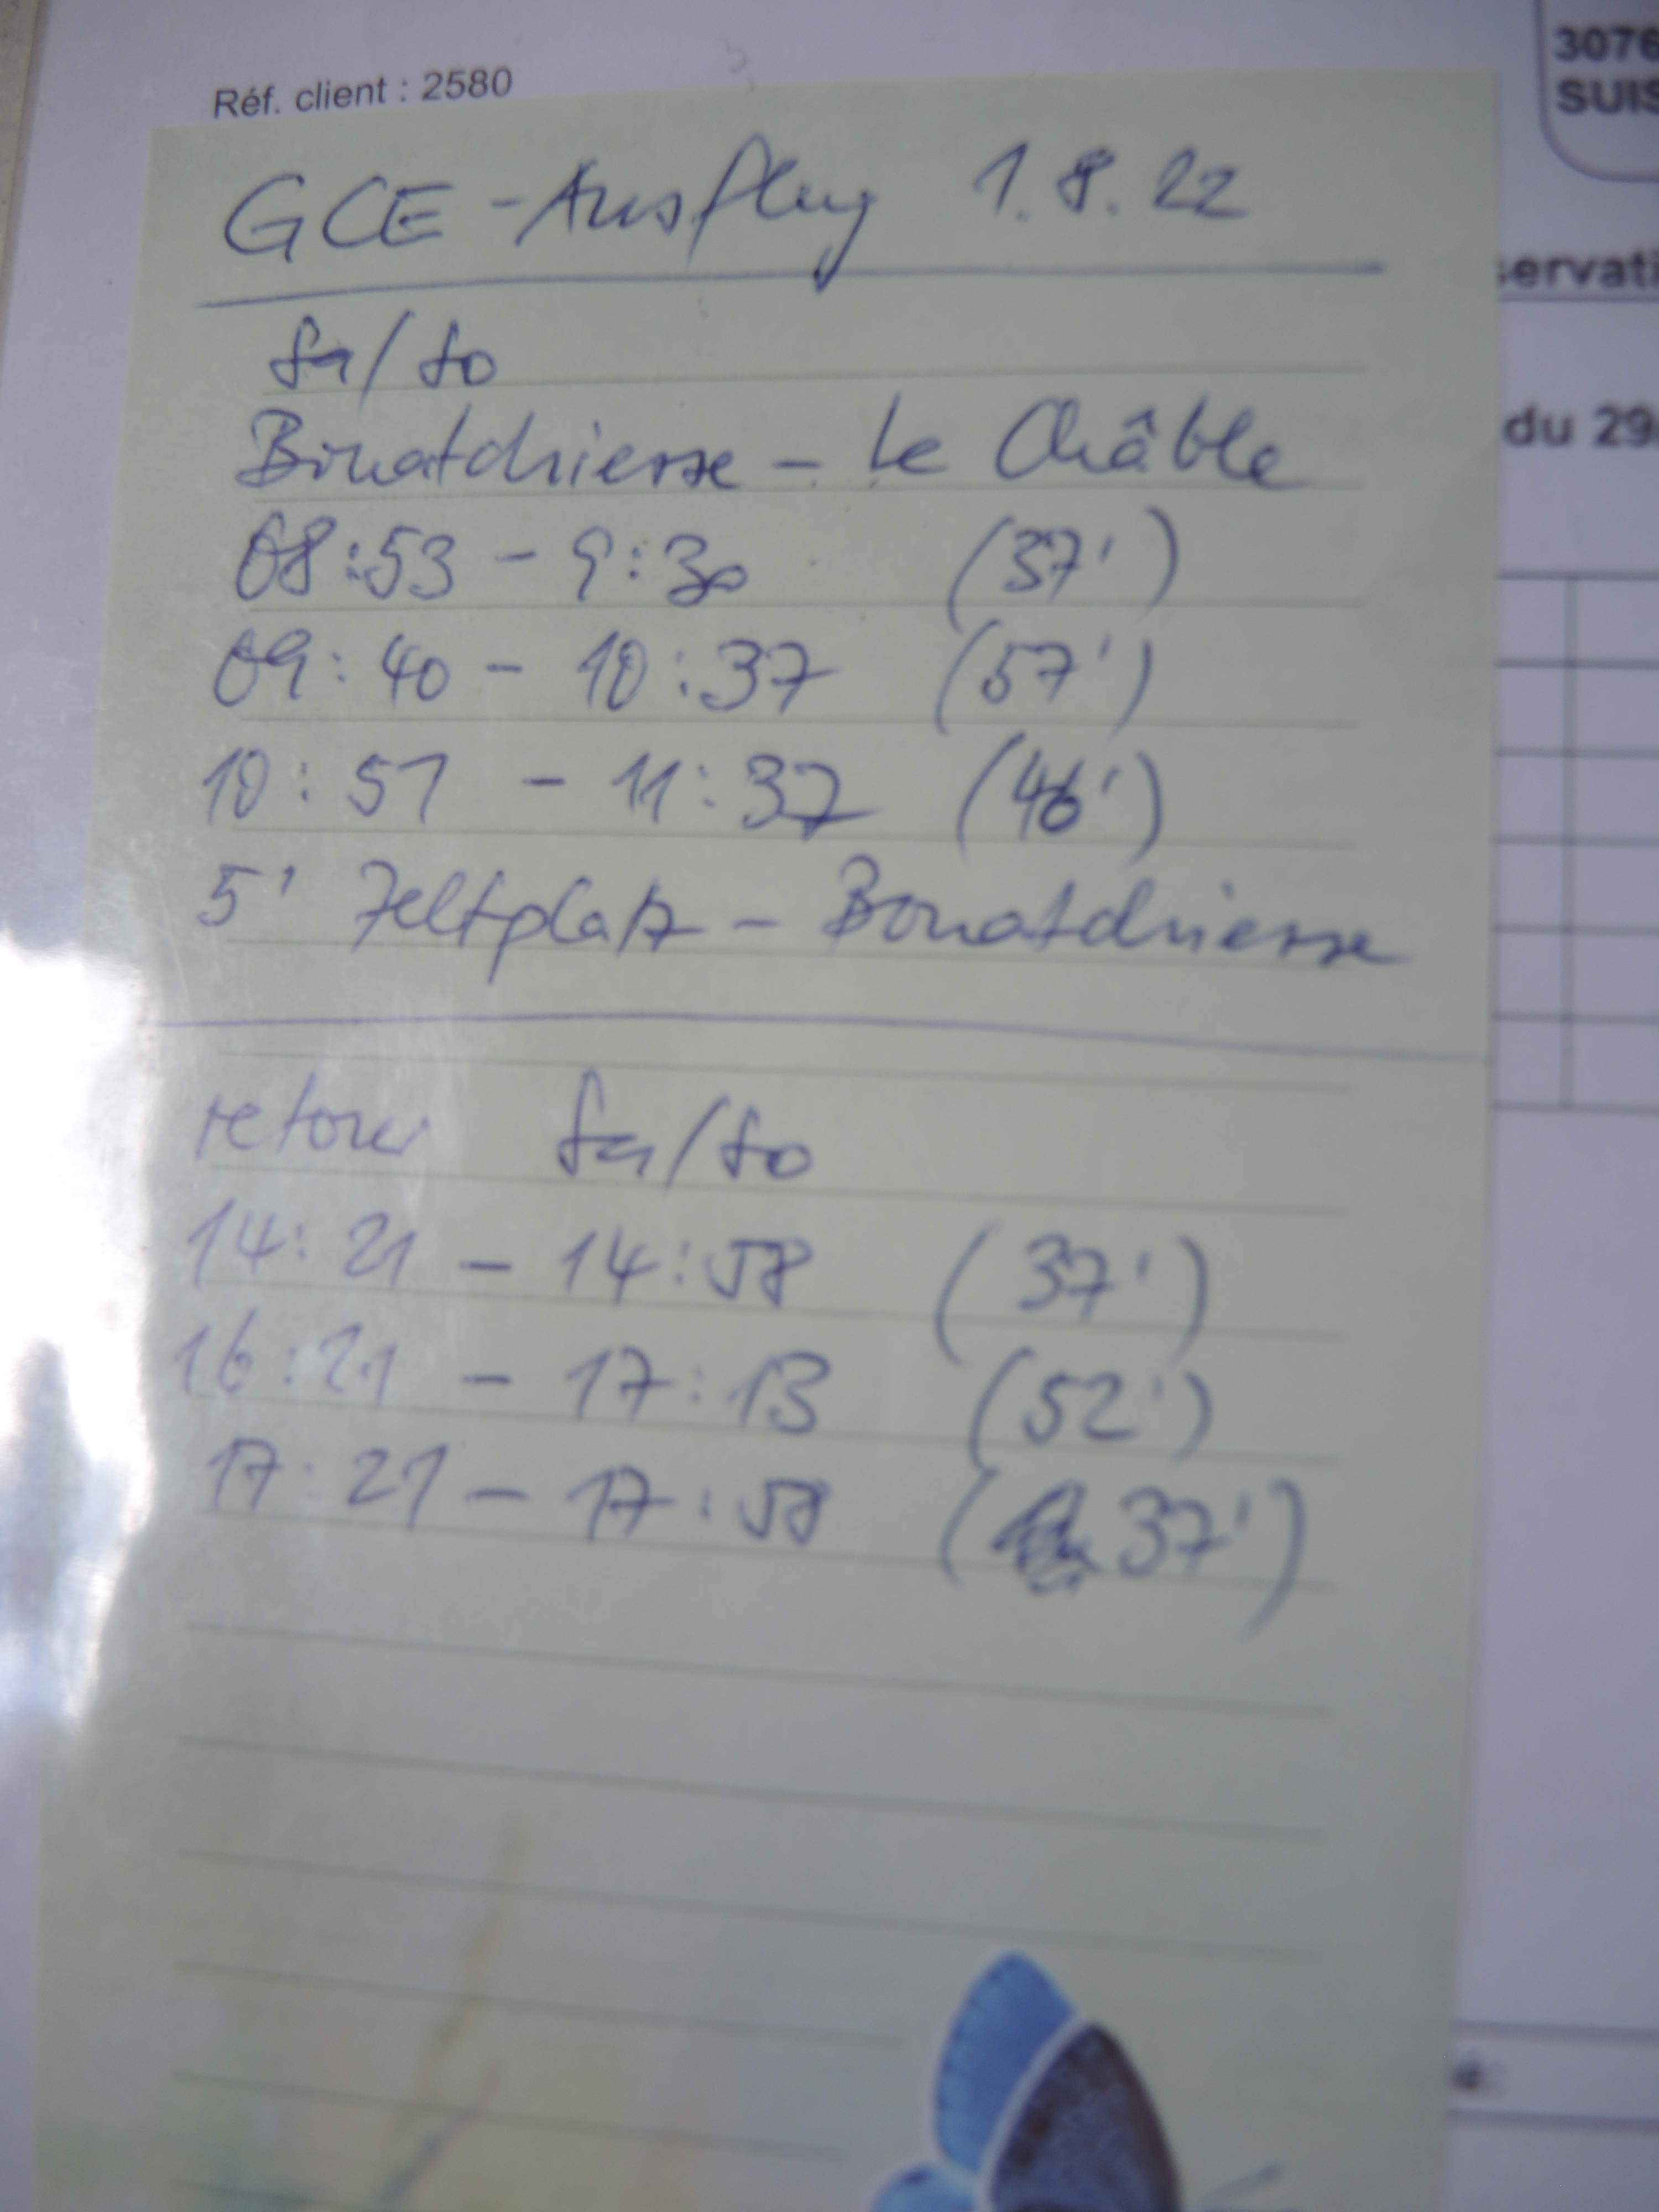 Réf. client : 2580
3076
SUIS
GCE-Ausflug 1.8.22
servati
Sa/So
du 29
Bonatchiesse – Le Châble
08:53 – 9:30 (37')
09:40 – 10:37 (57')
10:51 – 11:37 (46')
5' Zeltplatz – Bonatchiesse
retour Sa/So
14:21 – 14:58 (37')
16:21 – 17:13 (52')
17:21 – 17:58 (37')